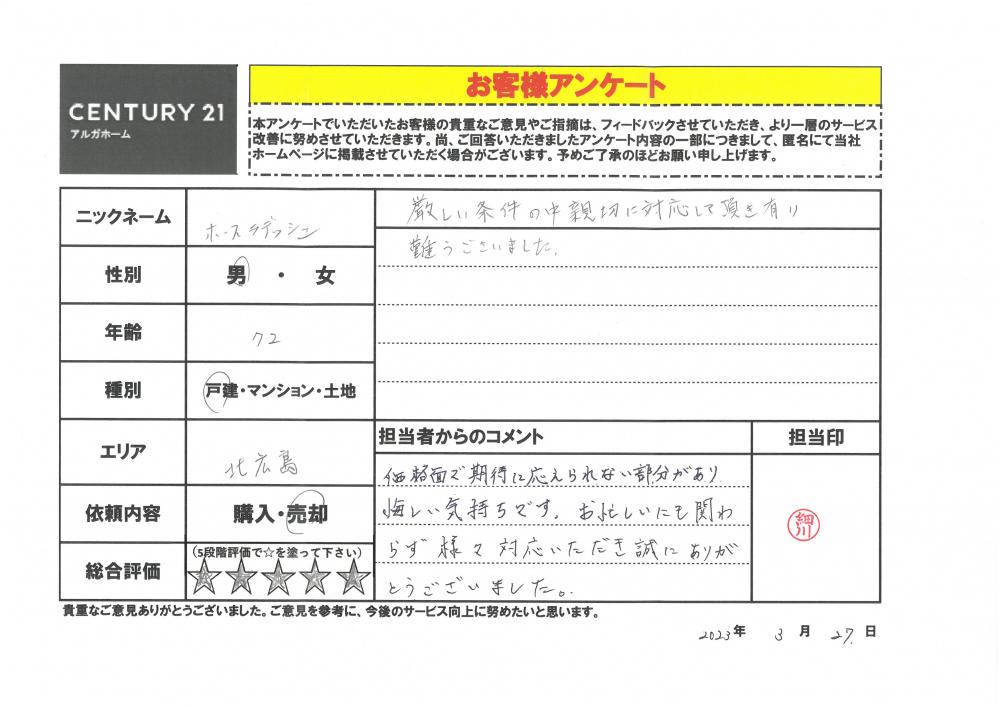 CENTURY 21
アルガホーム
お客様アンケート
本アンケートでいただいたお客様の貴重なご意見やご指摘は、フィードバックさせていただき、より一層のサービス
改善に努めさせていただきます。尚、ご回答いただきましたアンケート内容の一部につきまして、匿名にて当社
ホームページに掲載させていただく場合がございます。予めご了承のほどお願い申し上げます。
ニックネーム
ホースラデッシュ
性別
男 ・ 女
年齢
72
種別
戸建・マンション・土地
エリア
北広島
依頼内容
購入・売却
総合評価
(5段階評価で☆を塗って下さい)
厳しい条件の中親切に対応して頂き有り
難うございました。
担当者からのコメント
価格面で期待に応えられない部分があり
悔しい気持ちです。お忙しいにも関わ
らず様々対応いただき誠にありが
とうございました。
担当印
細川
貴重なご意見ありがとうございました。ご意見を参考に、今後のサービス向上に努めたいと思います。
2023年 3月 27.日